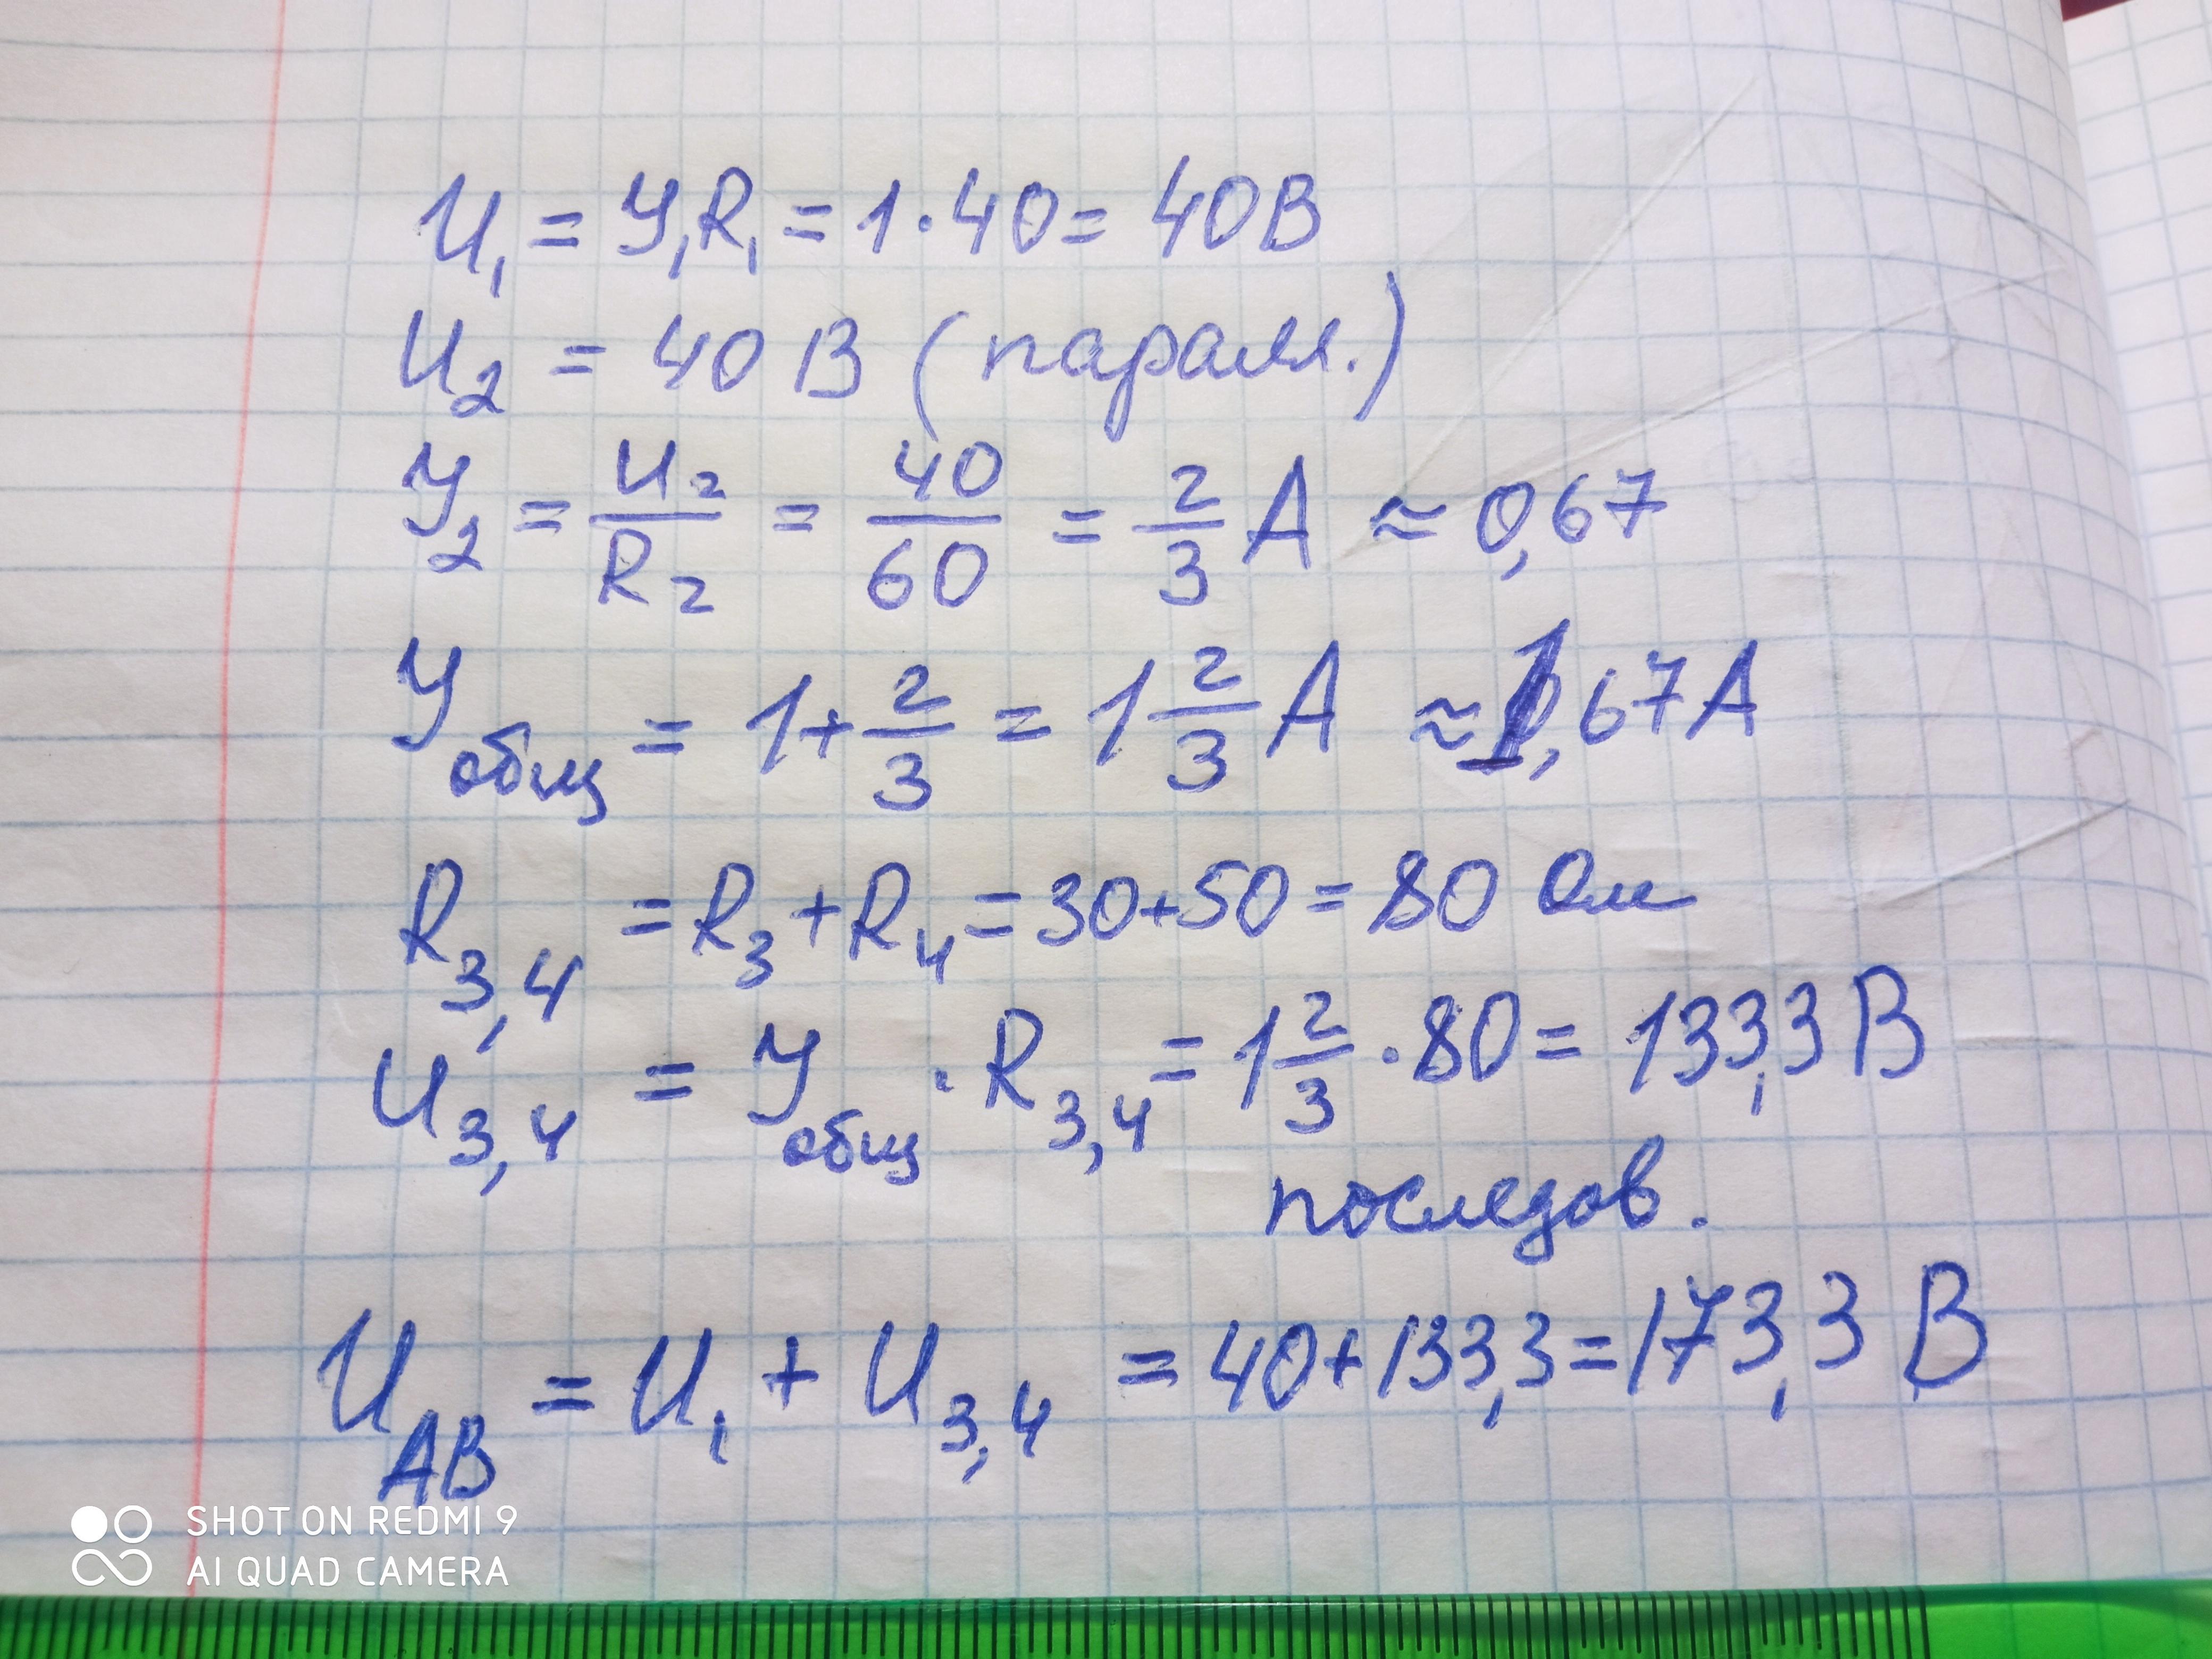 U₁ = У₁R₁ = 1·40 = 40В
U₂ = 40 В (паралл.)
У₂ = U₂/R₂ = 40/60 = 2/3 А ≈ 0,67
Уобщ = 1+2/3 = 1 2/3 А ≈ 1,67А
R₃,₄ = R₃ + R₄ = 30+50 = 80 Ом
U₃,₄ = Уобщ · R₃,₄ = 1 2/3 · 80 = 133,3 В
последов.
UАВ = U₁ + U₃,₄ = 40+133,3=173,3 В
SHOT ON REDMI 9
AI QUAD CAMERA